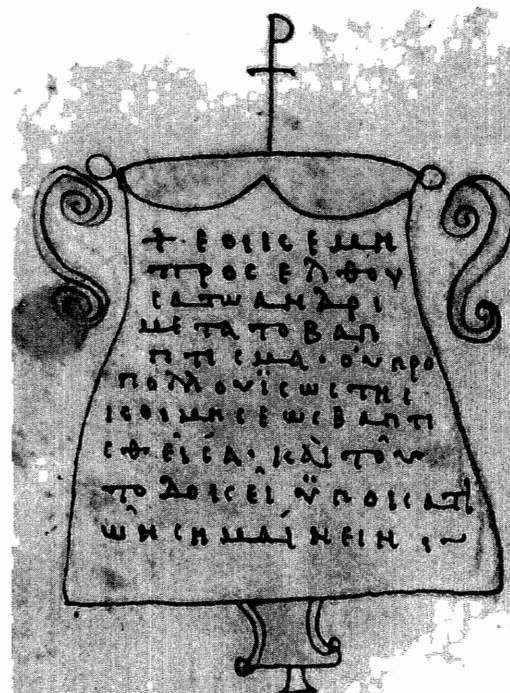 + · ΕΟΙΚΕ ΜΗ
ΠΡΟCΕΛΘΟΥ
CΑ ΠΩ ΑΝΔΡΙ
ΜΕΤΑ ΤΟ ΒΑΠ
ΠΤΙCΜΑ · ΟΥ ΠΡΟ
ΠΟΛΛΟΥ ΪCΩC ΤΗC
ΚΟΙΜΗCΕΩC ΒΑΠΤΙ
CΘΕΙ͂CΑ · ΚΑῚ ΤΟΥ͂
ΤΟ ΔΟΚΕΙ͂ Ϋ̓ΠΟΚΑΤΙ
ῺΝ CΗΜΑΊΝΕΙΝ ,~